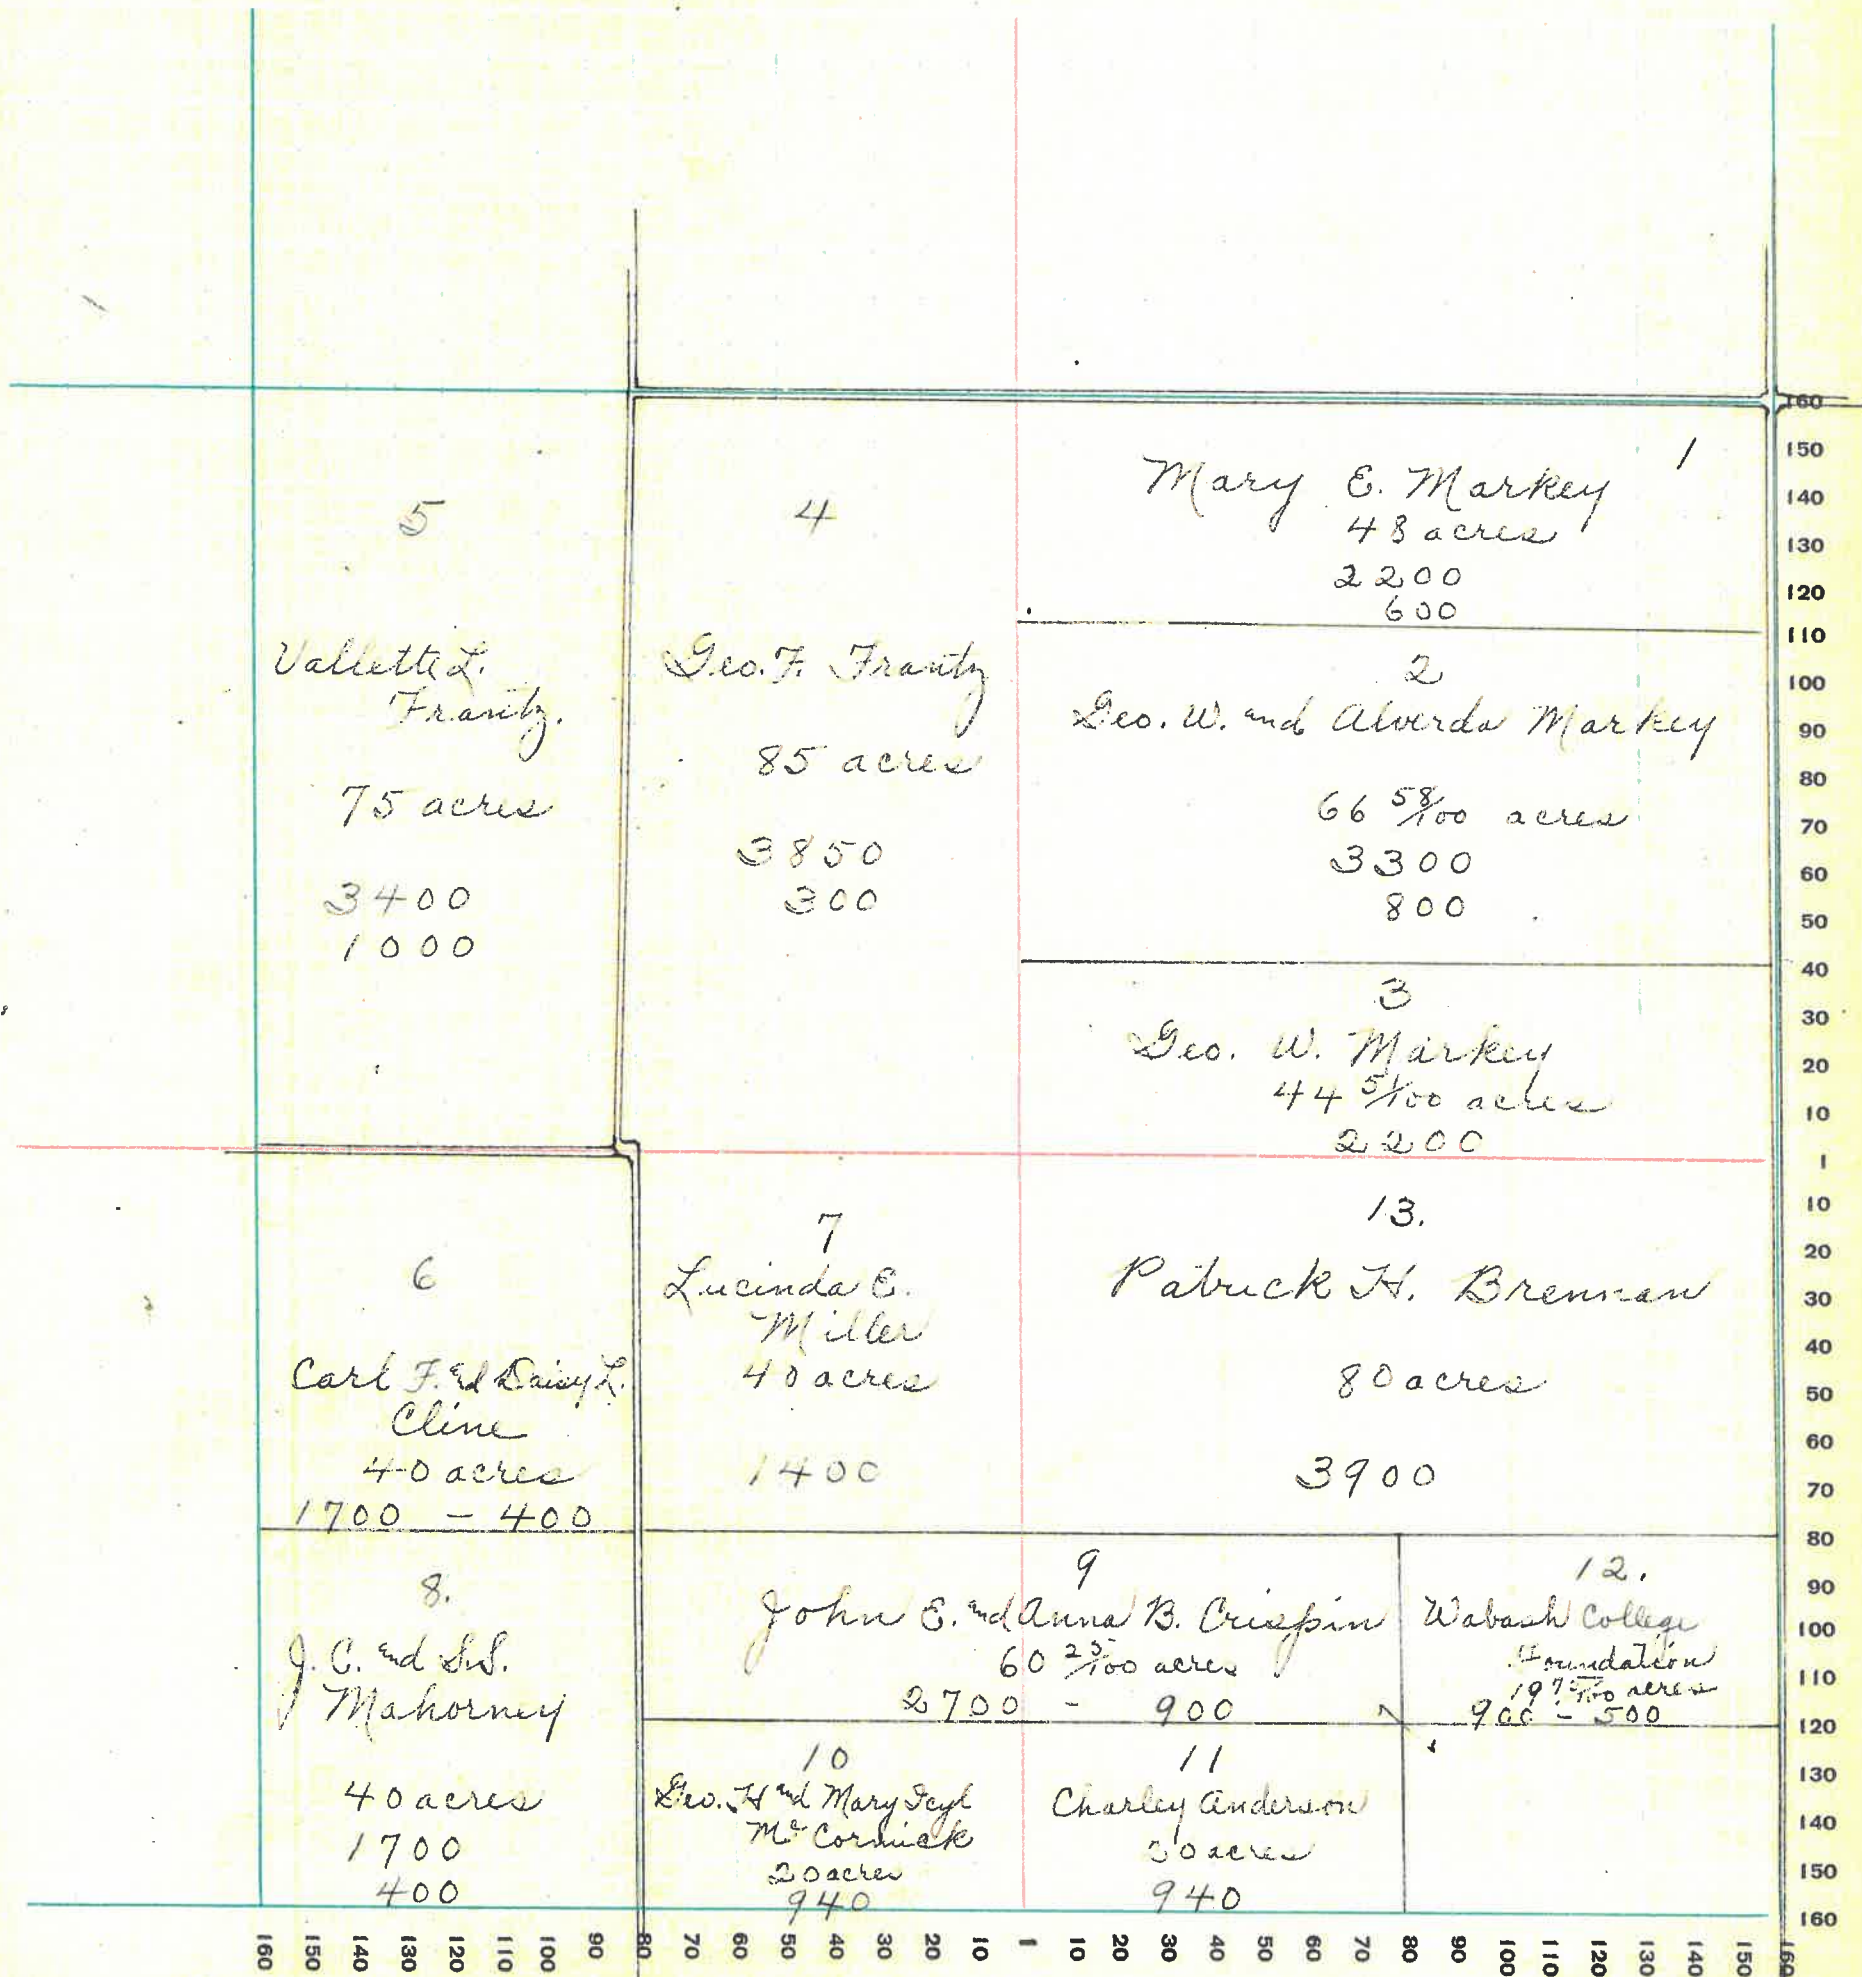 1
Mary E. Markey
48 acres
2200
600
2
Geo. W. and Alverda Markey
66 58/100 acres
3300
800
3
Geo. W. Markey
44 5/100 acres
2200
4
Geo. F. Frantz
85 acres
3850
300
5
Vallette L.
Frantz.
75 acres
3400
1000
6
Carl F. and Daisy L.
Cline
40 acres
1700 - 400
7
Lucinda E.
Miller
40 acres
1400
13.
Patrick H. Brennan
80 acres
3900
8.
J. C. and S.S.
Mahorney
40 acres
1700
400
9
John E. and Anna B. Crispin
60 25/100 acres
2700 - 900
12.
Wabash College
Foundation
19 75/100 acres
900 - 500
10
Geo. H and Mary
McCormick
20 acres
940
11
Charley Anderson
20 acres
940
160
150
140
130
120
110
100
90
80
70
60
50
40
30
20
10
1
10
20
30
40
50
60
70
80
90
100
110
120
130
140
150
160
160 150 140 130 120 110 100 90 80 70 60 50 40 30 20 10 1 10 20 30 40 50 60 70 80 90 100 110 120 130 140 150 160